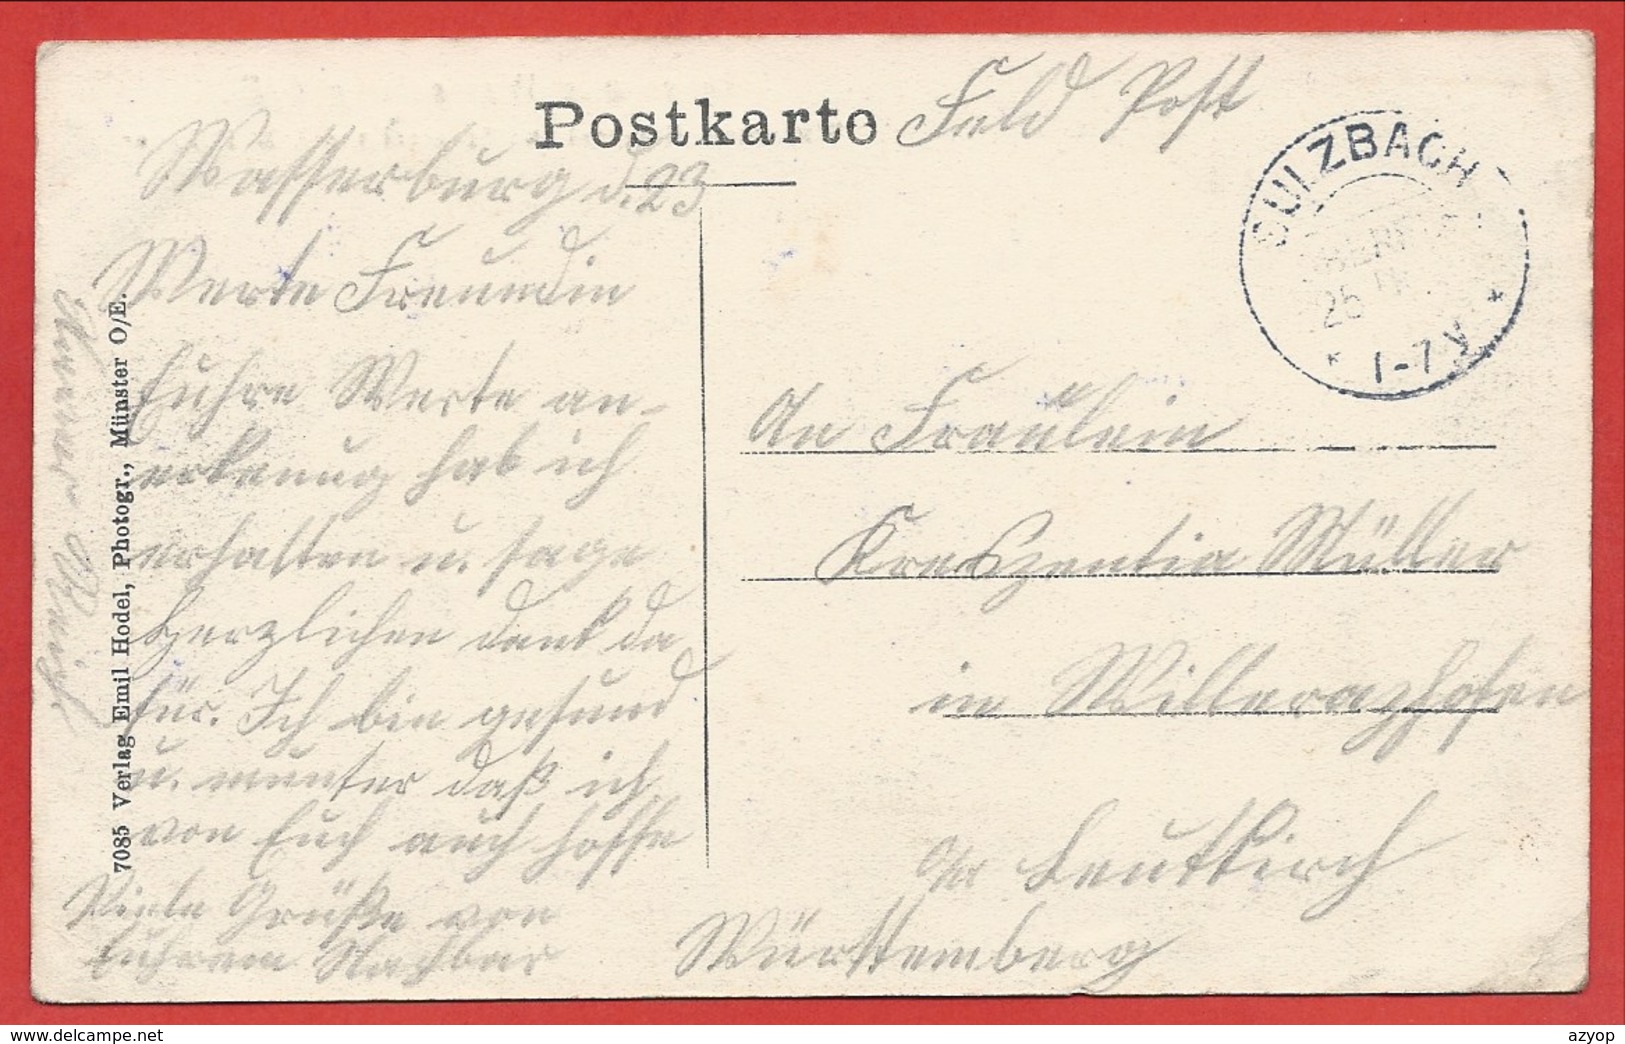 Postkarte
Feld Post
SULZBACH
25
1-7 V
Wasserburg d. 23
Werte Freundin
Euhre Werte an-
erkenug hab ich
erhalten u. sage
herzlichen dank da
für. Ich bin gesund
u. munter daß ich
von Euch auch hoffe
Viele Grüße von
Euhrem Nachbar
An Fräulein
Kreszentia Müller
in Willerazhofen
Leutkirch
Württemberg
7085 Verlag Emil Hodel, Photogr., Münster O/E.
azyop
delcampe.net